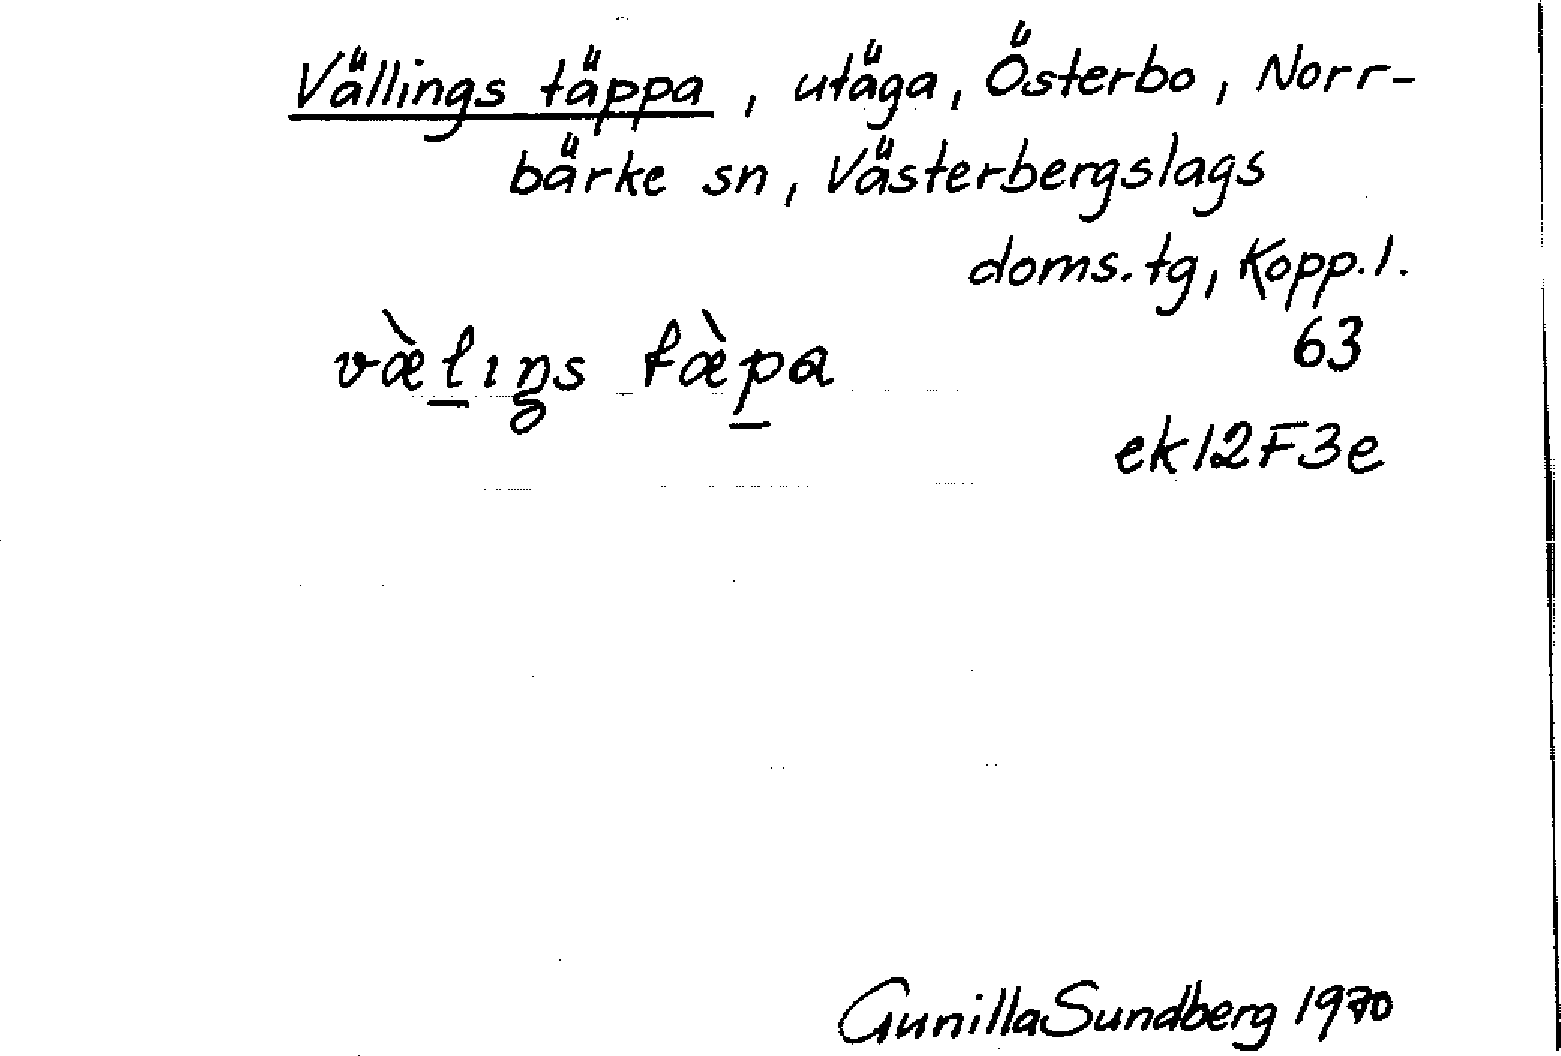 Vällings täppa, utäga, Österbo, Norr-
bärke sn, Västerbergslags
doms.tg, Kopp.l.
63
væ̀l̲ıŋs tæ̀p̲a
ek12F3e
Gunilla Sundberg 1970